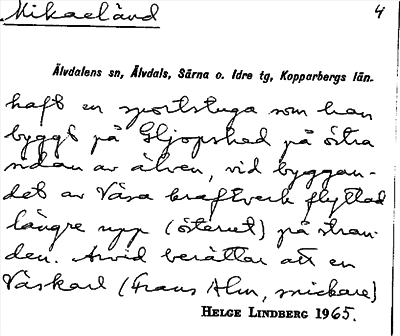 Mikaelävd 4
Älvdalens sn, Älvdals, Särna o. Idre tg, Kopparbergs län.
haft en sportstuga som han
byggt på Gljopshed på östra
sidan av älven, vid byggan-
det av Våsa kraftverk flyttad
längre upp (österut) på stran-
den. Arvid berättar att en
Våskarl (Frans Alm, snickare)
HELGE LINDBERG 1965.